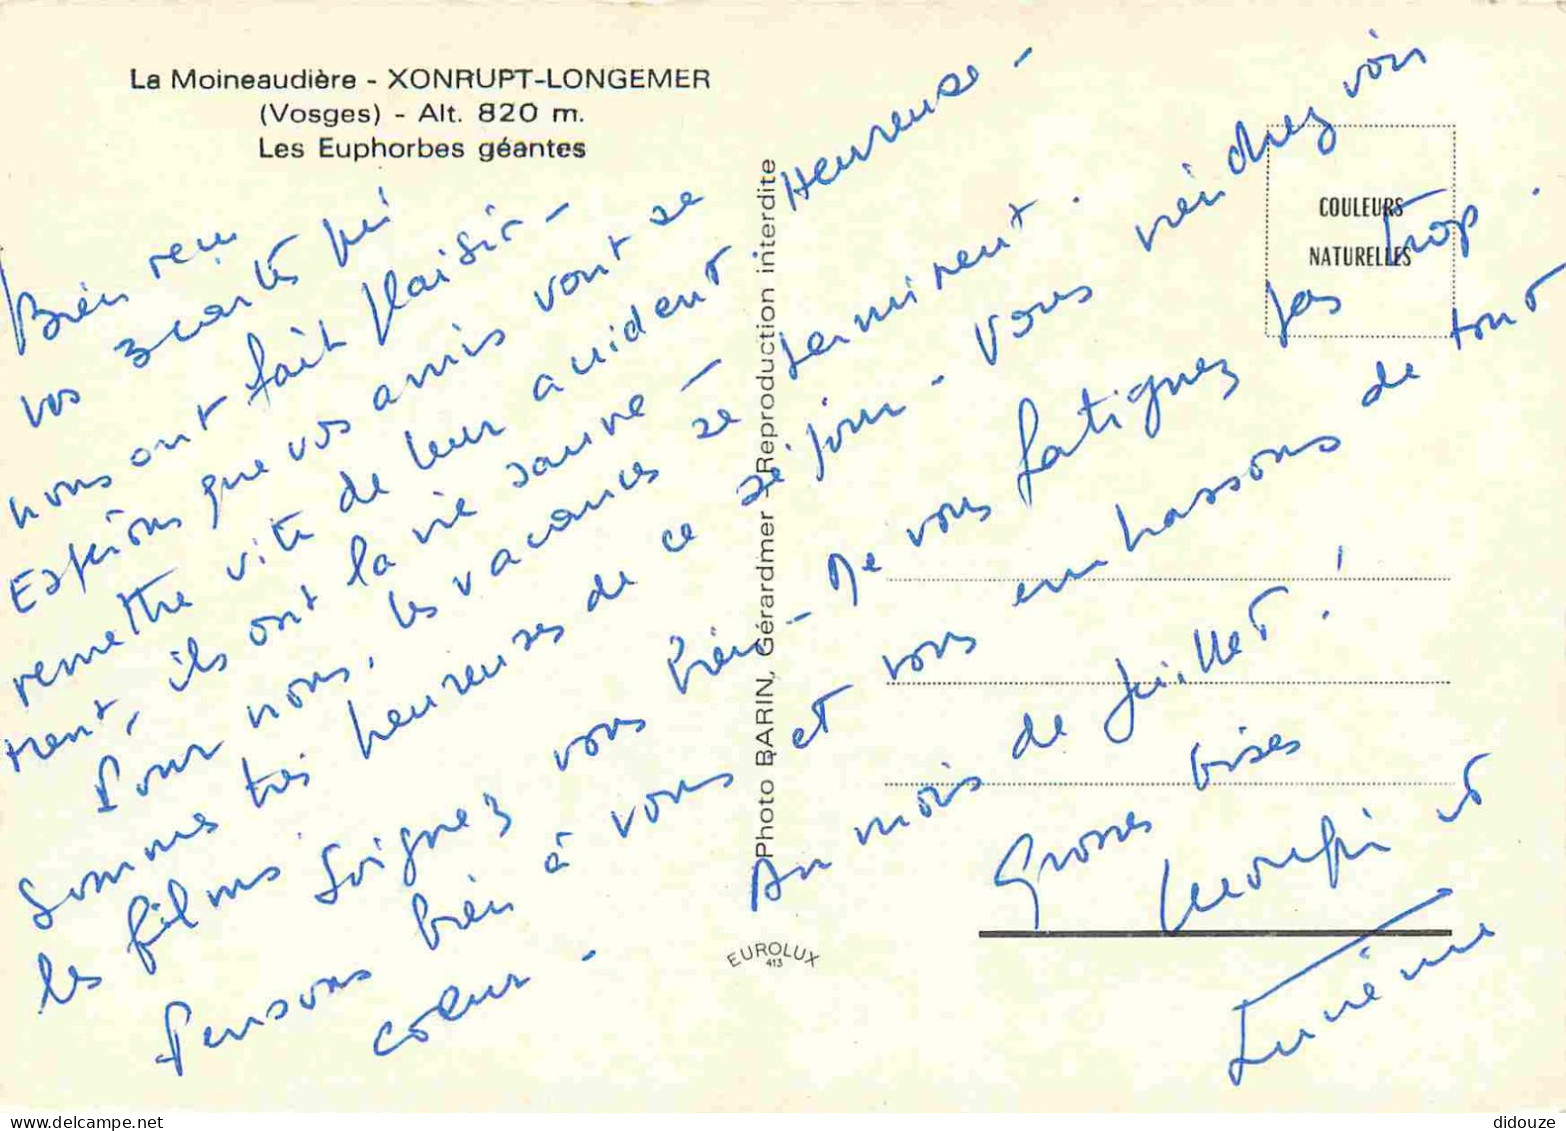 La Moineaudière - XONRUPT-LONGEMER
(Vosges) - Alt. 820 m.
Les Euphorbes géantes
Bien reçu
vos 3 cartes qui
nous ont fait plaisir -
Espérons que vos amis vont se
remettre vite de leur accident Heureuse -
ment, ils ont la vie sauve -
Pour nous, les vacances se terminent.
Sommes très heureuses de ce séjour - Vous viendrez voir
les films. Soignez vous bien - Ne vous fatiguez pas trop.
Pensons bien à vous et vous embrassons de tout
coeur -
Au mois de Juillet !
Grosses bises
et
Photo BARIN, Gérardmer - Reproduction interdite
EUROLUX
413
COULEURS
NATURELLES
didouze